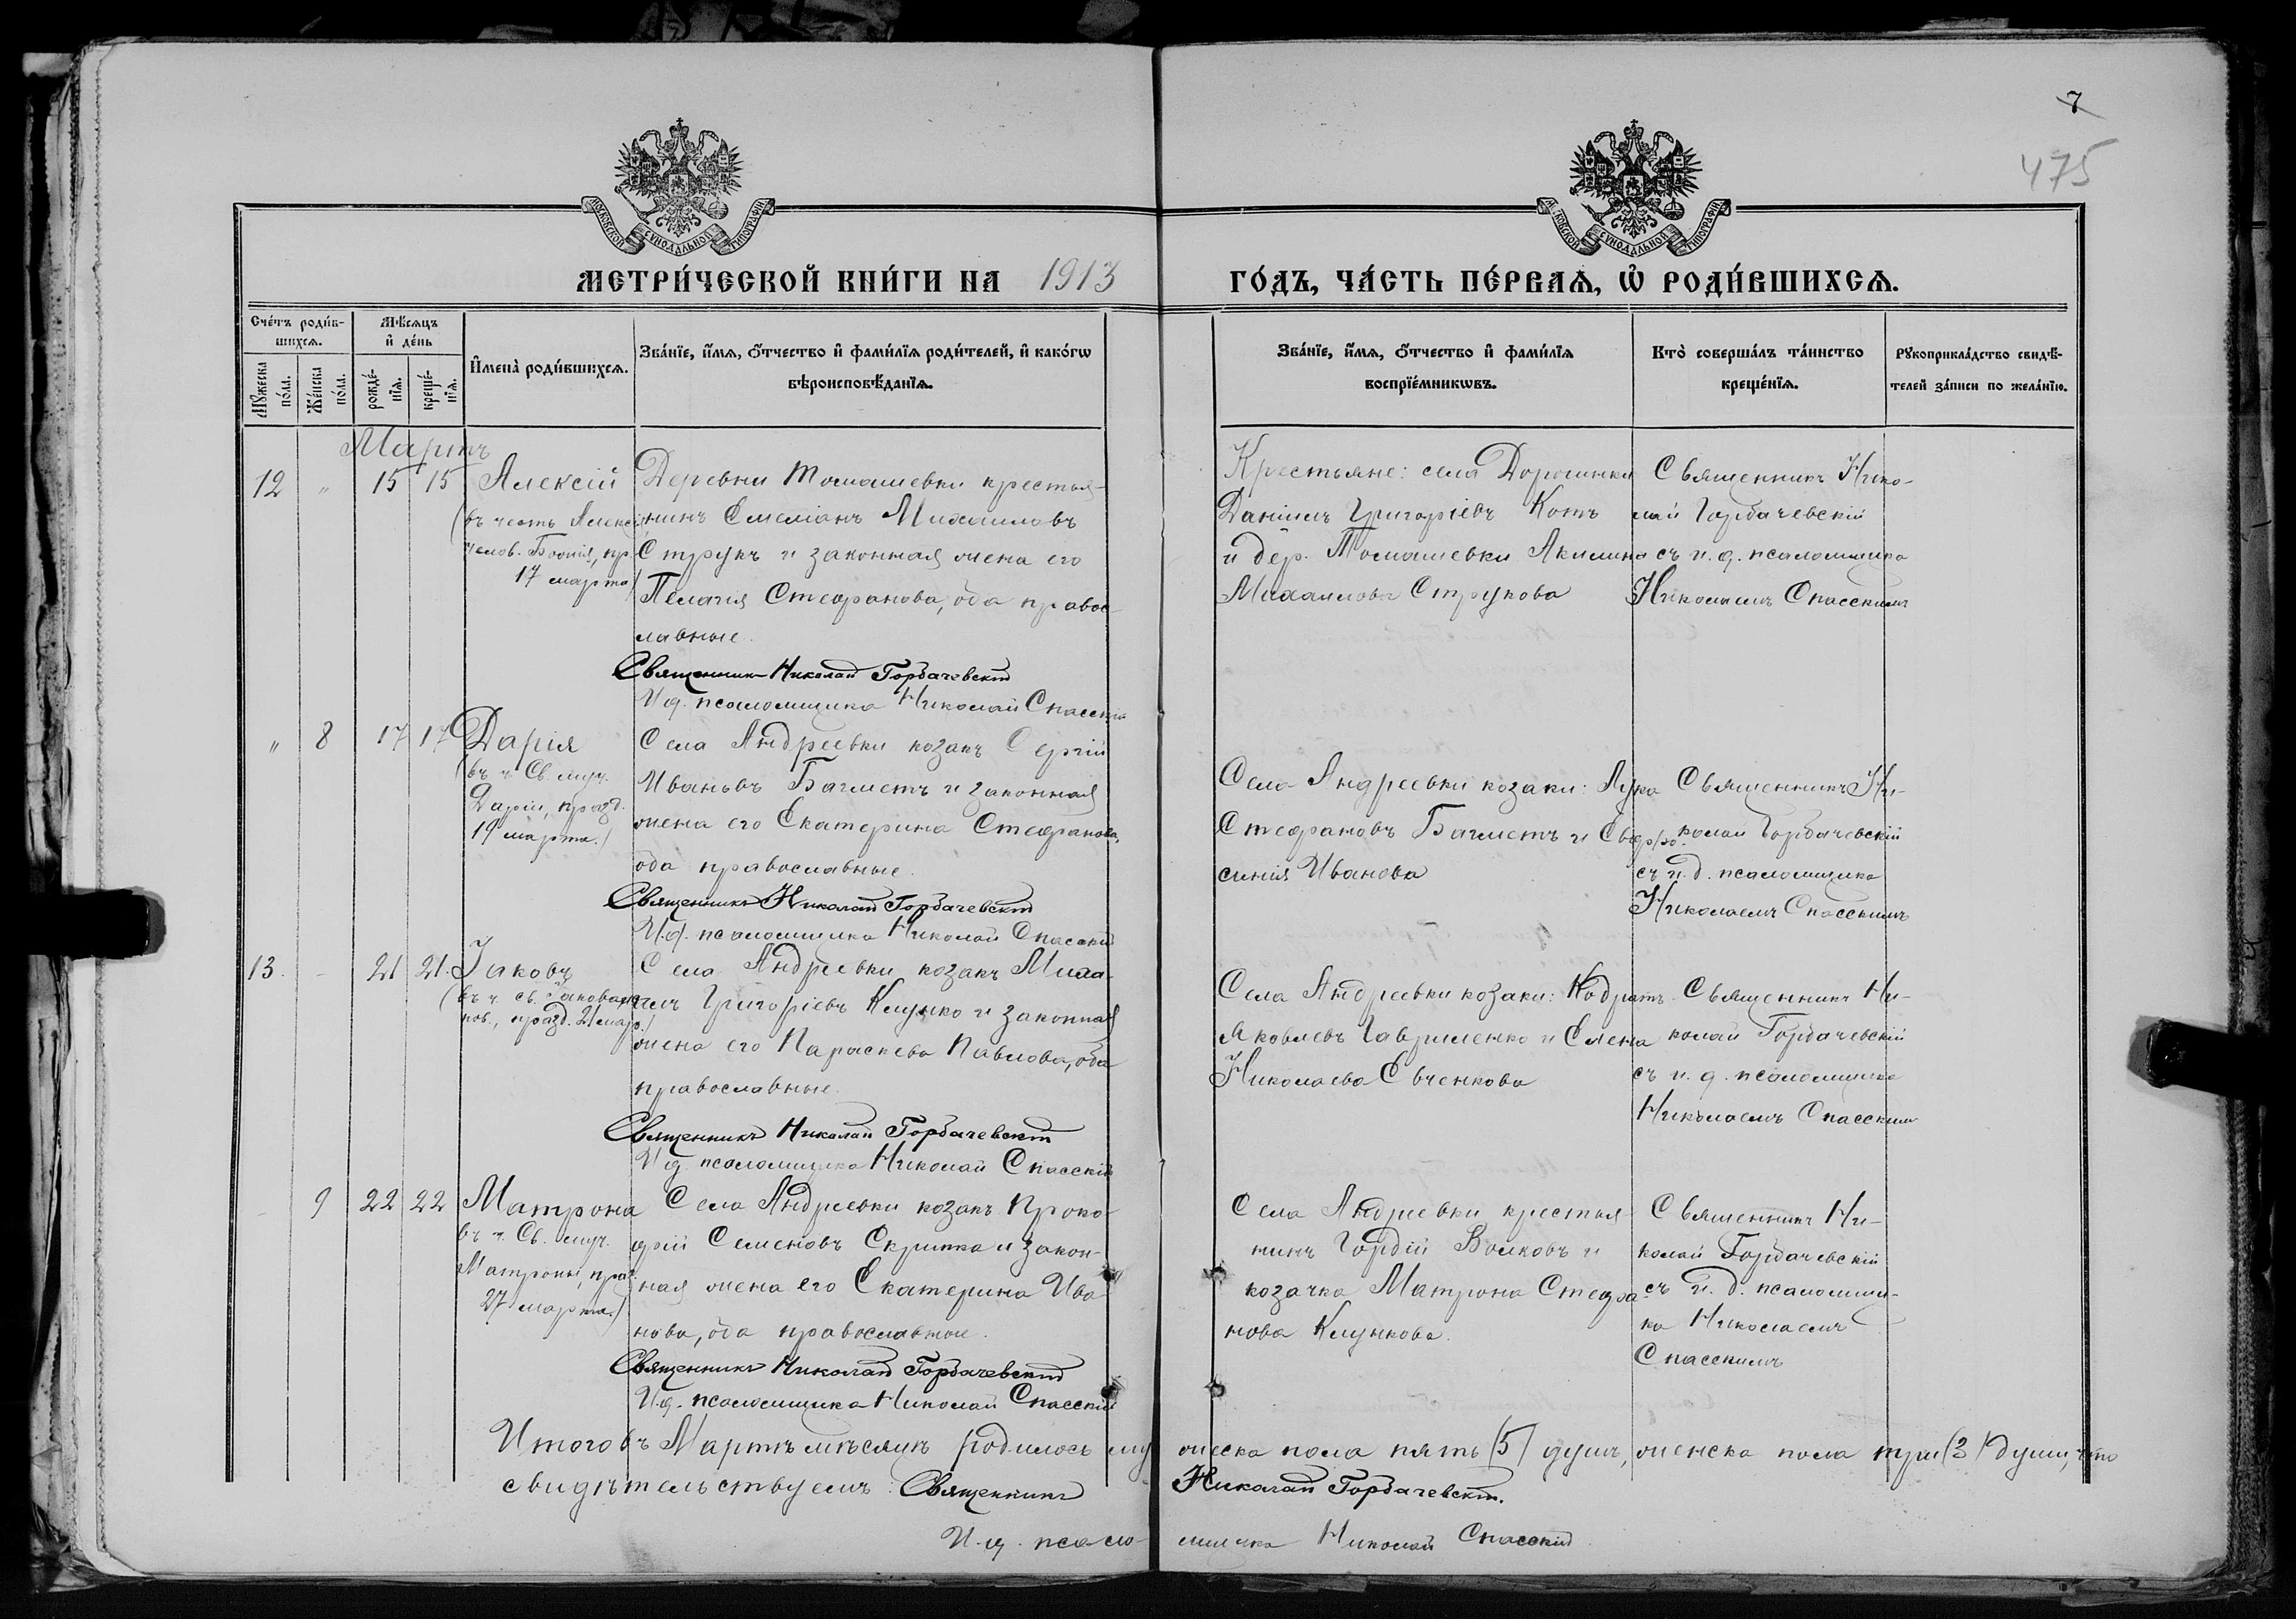 7
475
МОСКОВСКОЙ СѴНОДАЛЬНОЙ ТИПОГРАФІИ
МЕТРИ́ЧЕСКОЙ КНИ́ГИ НА 1913
ГО́ДЪ, ЧА́СТЬ ПЕ́РВАѦ, Ѡ҆ РОДИ́ВШИХСѦ.
Сче́тъ роди́в-
шихсѧ.
Мꙋ́жеска по́ла.
Же́нска по́ла.
Мѣ́сѧцъ
и҆ де́нь
рожде́-
нїѧ.
креще́-
нїѧ.
И҆мена̀ роди́вшихсѧ.
Зва́нїе, и҆́мѧ, ѻ҆́тчество и҆ фами́лїѧ роди́телей, и҆ како́гѡ
вѣроисповѣ́данїѧ.
Зва́нїе, и҆́мѧ, ѻ҆́тчество и҆ фами́лїѧ
воспрїе́мникѡвъ.
Кто̀ соверша́лъ та́инство
креще́нїѧ.
Рꙋкоприкла́дство свидѣ́-
телей за́писи по жела́нїю.
Мартъ
12 " 15 15 Алексій
(въ честь Алексія
челов. Божія, пр.
17 марта)
Деревни Томашевки крестья-
нинъ Емеліанъ Михаиловъ
Струкъ и законная жена его
Пелагія Стефанова, оба правос-
лавные.
Священникъ Николай Горбачевскій
И.д. псаломщика Николай Спасскій
Крестьяне: села Дорогинки
Даніилъ Григоріевъ Котъ
и дер. Томашевки Акилина
Михаилова Струкова
Священникъ Нико-
лай Горбачевскій
съ и. д. псаломщика
Николаемъ Спасскимъ
" 8 17 17 Дарія
(въ ч. Св. муч.
Даріи, празд.
19 марта.)
Села Андреевки козакъ Сергій
Ивановъ Багметъ и законная
жена его Екатерина Стефанова,
оба православные.
Священникъ Николай Горбачевскій
И.д. псаломщика Николай Спасскій
Села Андреевки козаки: Лука
Стефановъ Багметъ и Евфро-
синія Иванова
Священникъ Ни-
колай Горбачевскій
съ и. д. псаломщика
Николаемъ Спасскимъ
13. - 21 21. Іаковъ
(въ ч. св. Іакова
пов., празд. 21 мар.)
Села Андреевки козакъ Миха-
илъ Григоріевъ Клунко и законная
жена его Параскева Павлова, оба
православные.
Священникъ Николай Горбачевскій
И.д. псаломщика Николай Спасскій
Села Андреевки козаки: Кодратъ
Яковлевъ Гавриленко и Елена
Николаева Евченкова
Священникъ Ни-
колай Горбачевскій
съ и. д. псаломщика
Николаемъ Спасскимъ
- 9 22 22 Матрона
въ ч. Св. муч.
Матроны, праз.
27 марта.)
Села Андреевки козакъ Проко-
фій Семеновъ Скрипка и закон-
ная жена его Екатерина Ива-
нова, оба православные.
Священникъ Николай Горбачевскій
И.д. псаломщика Николай Спасскій
Села Андреевки крестья-
нинъ Гордій Волковъ и
козачка Матрона Стефа-
нова Клункова.
Священникъ Ни-
колай Горбачевскій
съ и. д. псаломщи-
ка Николаемъ
Спасскимъ
Итого въ Мартѣ мѣсяцѣ родилось мужеска пола пять (5) душъ, женска пола три (3) души, что
свидѣтельствуемъ: Священникъ Николай Горбачевскій.
И.д. псаломщика Николай Спасскій